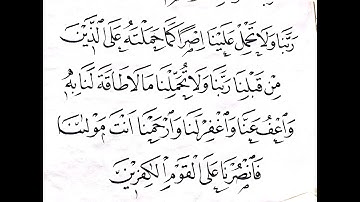 رَبَّنَا وَلَا تَحْمِلْ عَلَيْنَا اِصْرًا كَمَا حَمَلْتَهُ عَلَى الَّذِيْنَ
مِنْ قَبْلِنَا رَبَّنَا وَلَا تُحَمِّلْنَا مَا لَا طَاقَةَ لَنَا بِهٖ
وَاعْفُ عَنَّا وَاغْفِرْ لَنَا وَارْحَمْنَا اَنْتَ مَوْلٰىنَا
فَانْصُرْنَا عَلَى الْقَوْمِ الْكٰفِرِيْنَ